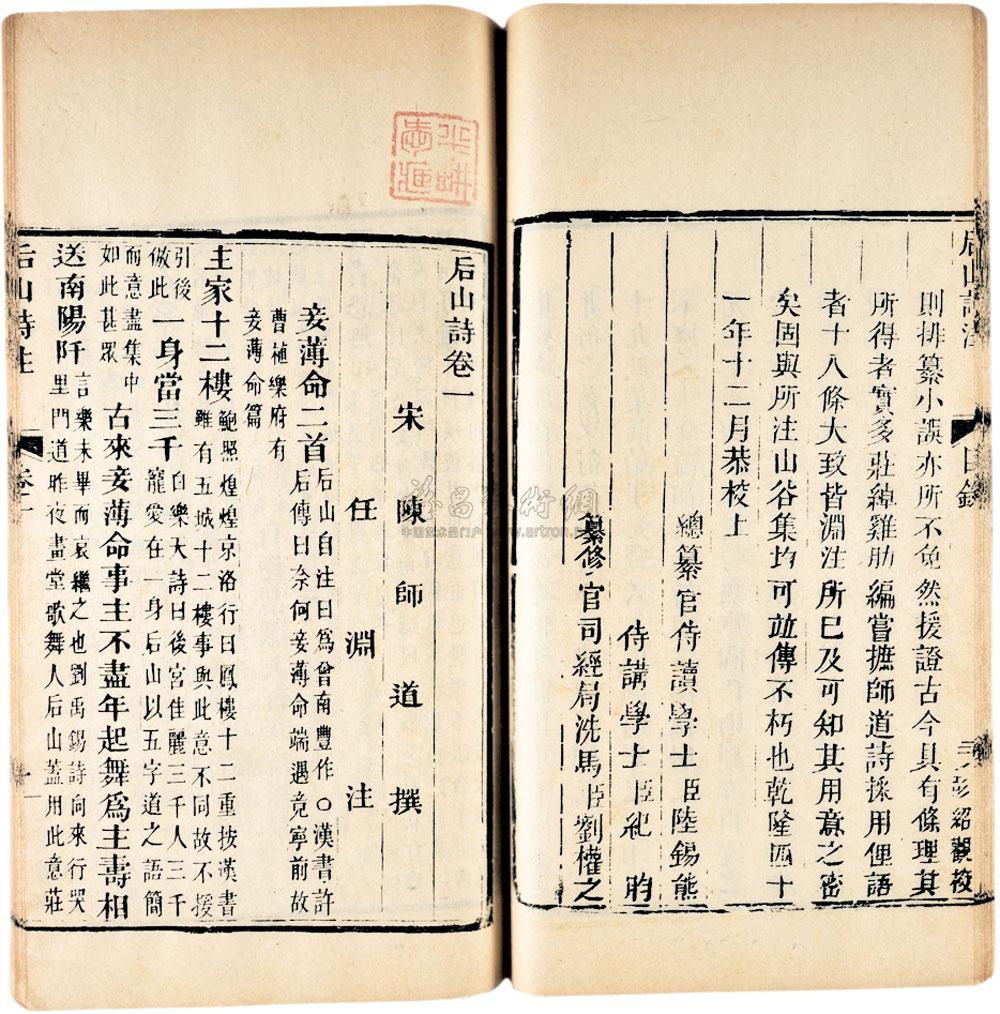 后山詩注
目錄
三
彭紹觀校
則排纂小誤亦所不免然援證古今具有條理其
所得者實多莊綽雞肋編嘗摭師道詩採用俚語
者十八條大致皆淵注所已及可知其用意之密
矣固與所注山谷集均可並傳不朽也乾隆四十
一年十二月恭校上
總纂官侍讀學士臣陸錫熊
侍講學士臣紀昀
纂修官司經局洗馬臣劉權之
后山詩卷一
宋陳師道撰
任淵注
妾薄命二首后山自注曰為曾南豐作○漢書許
后傳曰奈何妾薄命端遇竟寧前故
曹植樂府有
妾薄命篇
主家十二樓鮑照煌煌京洛行曰鳳樓十二重按漢書
雖有五城十二樓事與此意不同故不援
引後
倣此一身當三千白樂天詩曰後宮佳麗三千人三千
寵愛在一身后山以五字道之語簡
而意盡集中
如此甚眾古來妾薄命事主不盡年起舞為主壽相
送南陽阡言樂未畢而哀繼之也劉禹錫詩向來行哭
里門道昨夜畫堂歌舞人后山蓋用此意莊
后山詩注
卷一
一
中国艺术品门户网 www.artron.net